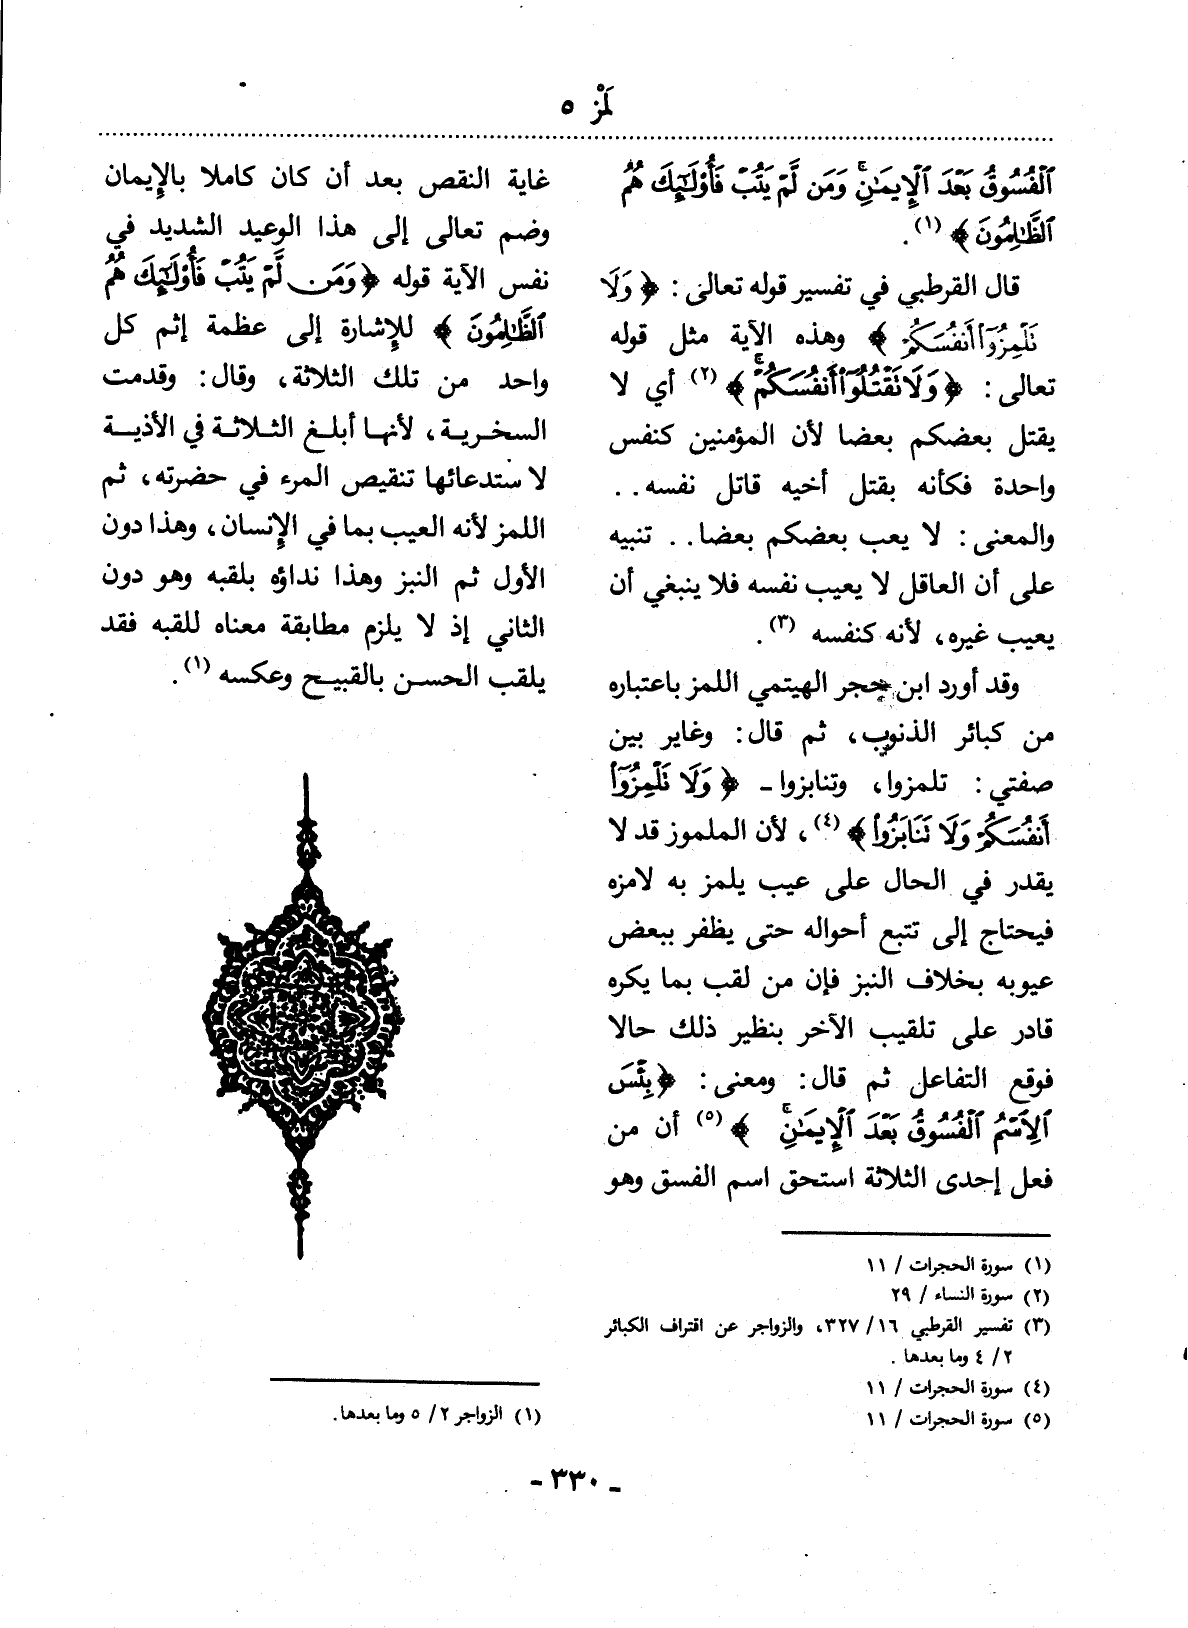 لَمْز ٥
ٱلْفُسُوقُ بَعْدَ ٱلْإِيمَٰنِ ۚ وَمَن لَّمْ يَتُبْ فَأُوْلَٰٓئِكَ هُمُ
ٱلظَّٰلِمُونَ ﴾ (١) .
قال القرطبي في تفسير قوله تعالى : ﴿ وَلَا
تَلْمِزُوٓاْ أَنفُسَكُمْ ﴾ وهذه الآية مثل قوله
تعالى : ﴿ وَلَا تَقْتُلُوٓاْ أَنفُسَكُمْ ۚ ﴾ (٢) أي لا
يقتل بعضكم بعضا لأن المؤمنين كنفس
واحدة فكأنه بقتل أخيه قاتل نفسه . .
والمعنى : لا يعب بعضكم بعضا . . تنبيه
على أن العاقل لا يعيب نفسه فلا ينبغي أن
يعيب غيره، لأنه كنفسه (٣) .
وقد أورد ابن حجر الهيتمي اللمز باعتباره
من كبائر الذنوب، ثم قال : وغاير بين
صفتي : تلمزوا، وتنابزوا ـ ﴿ وَلَا تَلْمِزُوٓاْ
أَنفُسَكُمْ وَلَا تَنَابَزُواْ ﴾ (٤) ، لأن الملموز قد لا
يقدر في الحال على عيب يلمز به لامزه
فيحتاج إلى تتبع أحواله حتى يظفر ببعض
عيوبه بخلاف النبز فإن من لقب بما يكره
قادر على تلقيب الآخر بنظير ذلك حالا
فوقع التفاعل ثم قال : ومعنى : ﴿ بِئْسَ
ٱلِٱسْمُ ٱلْفُسُوقُ بَعْدَ ٱلْإِيمَٰنِ ۚ ﴾ (٥) أن من
فعل إحدى الثلاثة استحق اسم الفسق وهو
(١) سورة الحجرات / ١١
(٢) سورة النساء / ٢٩
(٣) تفسير القرطبي ١٦/ ٣٢٧، والزواجر عن اقتراف الكبائر
٢/ ٤ وما بعدها .
(٤) سورة الحجرات / ١١
(٥) سورة الحجرات / ١١
غاية النقص بعد أن كان كاملا بالإيمان
وضم تعالى إلى هذا الوعيد الشديد في
نفس الآية قوله ﴿ وَمَن لَّمْ يَتُبْ فَأُوْلَٰٓئِكَ هُمُ
ٱلظَّٰلِمُونَ ﴾ للإشارة إلى عظمة إثم كل
واحد من تلك الثلاثة، وقال : وقدمت
السخرية، لأنها أبلغ الثلاثة في الأذية
لاستدعائها تنقيص المرء في حضرته، ثم
اللمز لأنه العيب بما في الإنسان، وهذا دون
الأول ثم النبز وهذا نداؤه بلقبه وهو دون
الثاني إذ لا يلزم مطابقة معناه للقبه فقد
يلقب الحسن بالقبيح وعكسه (١) .
(١) الزواجر ٢/ ٥ وما بعدها.
ـ ٣٣٠ ـ